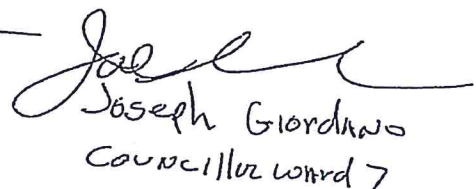 Joseph Giordano
Councillor ward 7